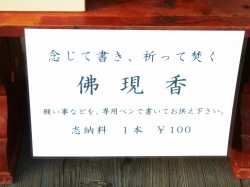 念じて書き、祈って焚く
佛現香
願い事などを、専用ペンで書いてお供え下さい。
志納料 1本 ¥100